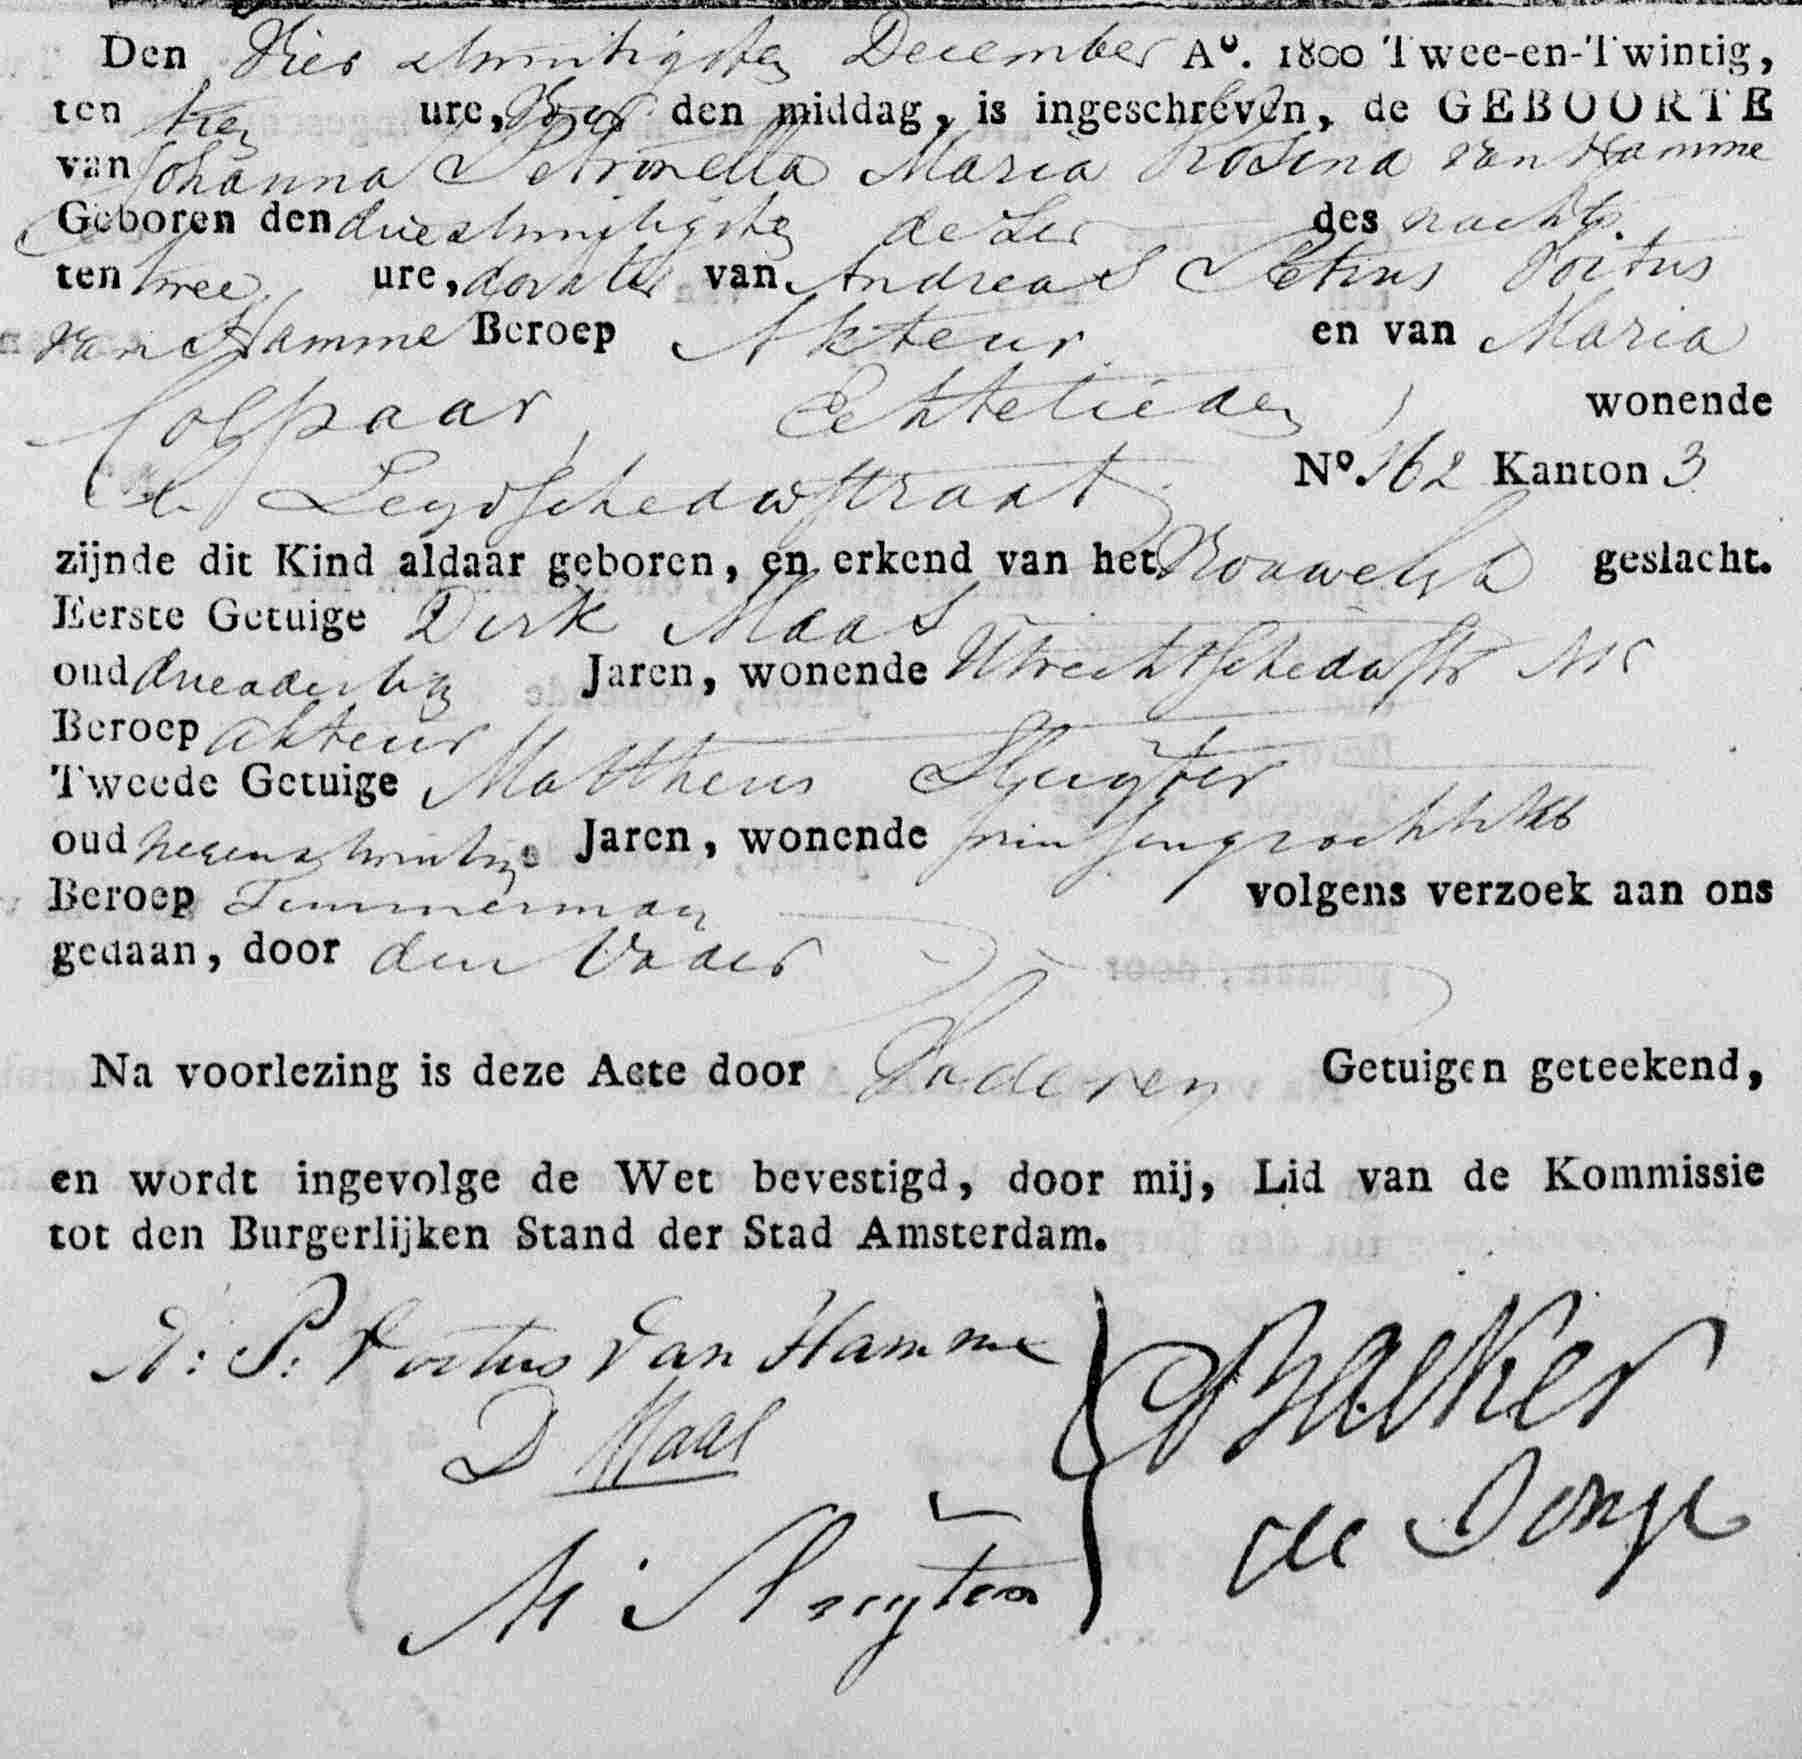 Den Vier etwintigsten December Aº. 1800 Twee-en-Twintig,
ten tien ure, Voor den middag, is ingeschreven, de GEBOORTE
van Johanna Petronella Maria Rosina van Hamme
Geboren den drieetwintigsten deser des nachts
ten twee ure, dochter van Andreas Petrus Voitus
van Hamme Beroep Akteur en van Maria
Colpaar, Echtelieden wonende
Leydschedwstraat Nº. 162 Kanton 3
zijnde dit Kind aldaar geboren, en erkend van het Vrouwelyk geslacht.
Eerste Getuige Dirk Maas
oud drieadertig Jaren, wonende Utrechtschedwstr
Beroep akteur
Tweede Getuige Mattheus Sluyter
oud negenetwintig Jaren, wonende prinsengracht
Beroep Timmerman volgens verzoek aan ons
gedaan, door den Vader
Na voorlezing is deze Acte door Vader en Getuigen geteekend,
en wordt ingevolge de Wet bevestigd, door mij, Lid van de Kommissie
tot den Burgerlijken Stand der Stad Amsterdam.
A: P: Voitus Van Hamme
Backer
D Maas
de Jonge
M Sluyter